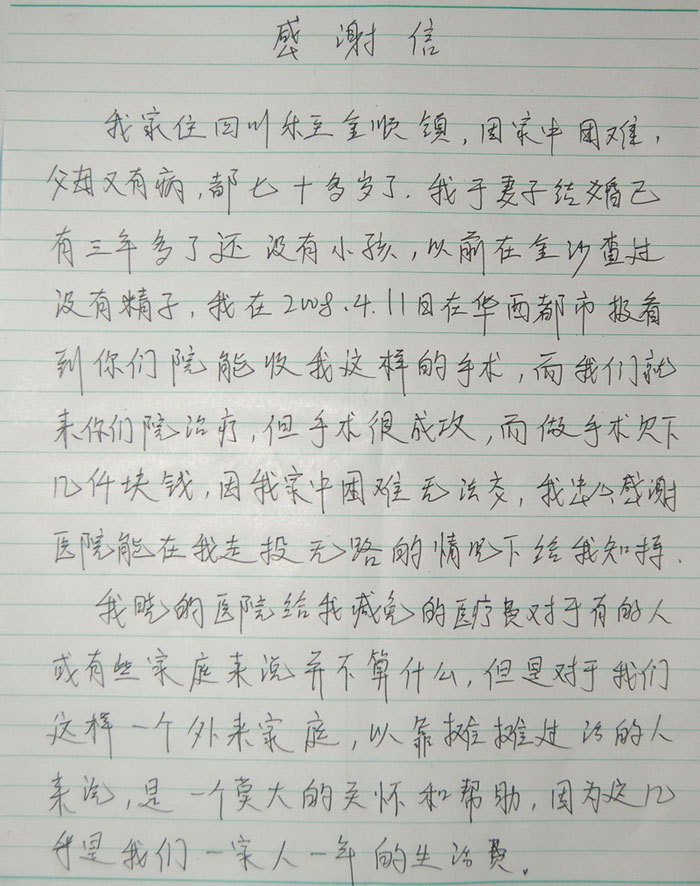 感谢信
我家住四川乐至金顺镇,因家中困难,
父母又有病,都七十多岁了.我于妻子结婚已
有三年多了还没有小孩,以前在金沙查过
没有精子,我在2008.4.11日在华西都市报看
到你们院能收我这样的手术,而我们就
来你们院治疗,但手术很成攻,而做手术欠下
几仟块钱,因我家中困难无法交,我感谢
医院能在我走投无路的情况下给我支持.
我晓的医院给我减免的医疗费对于有的人
或有些家庭来说并不算什么,但是对于我们
这样一个外来家庭,以靠摊摊过活的人
来说,是一个莫大的关怀和帮助,因为这几
千是我们一家人一年的生活费.